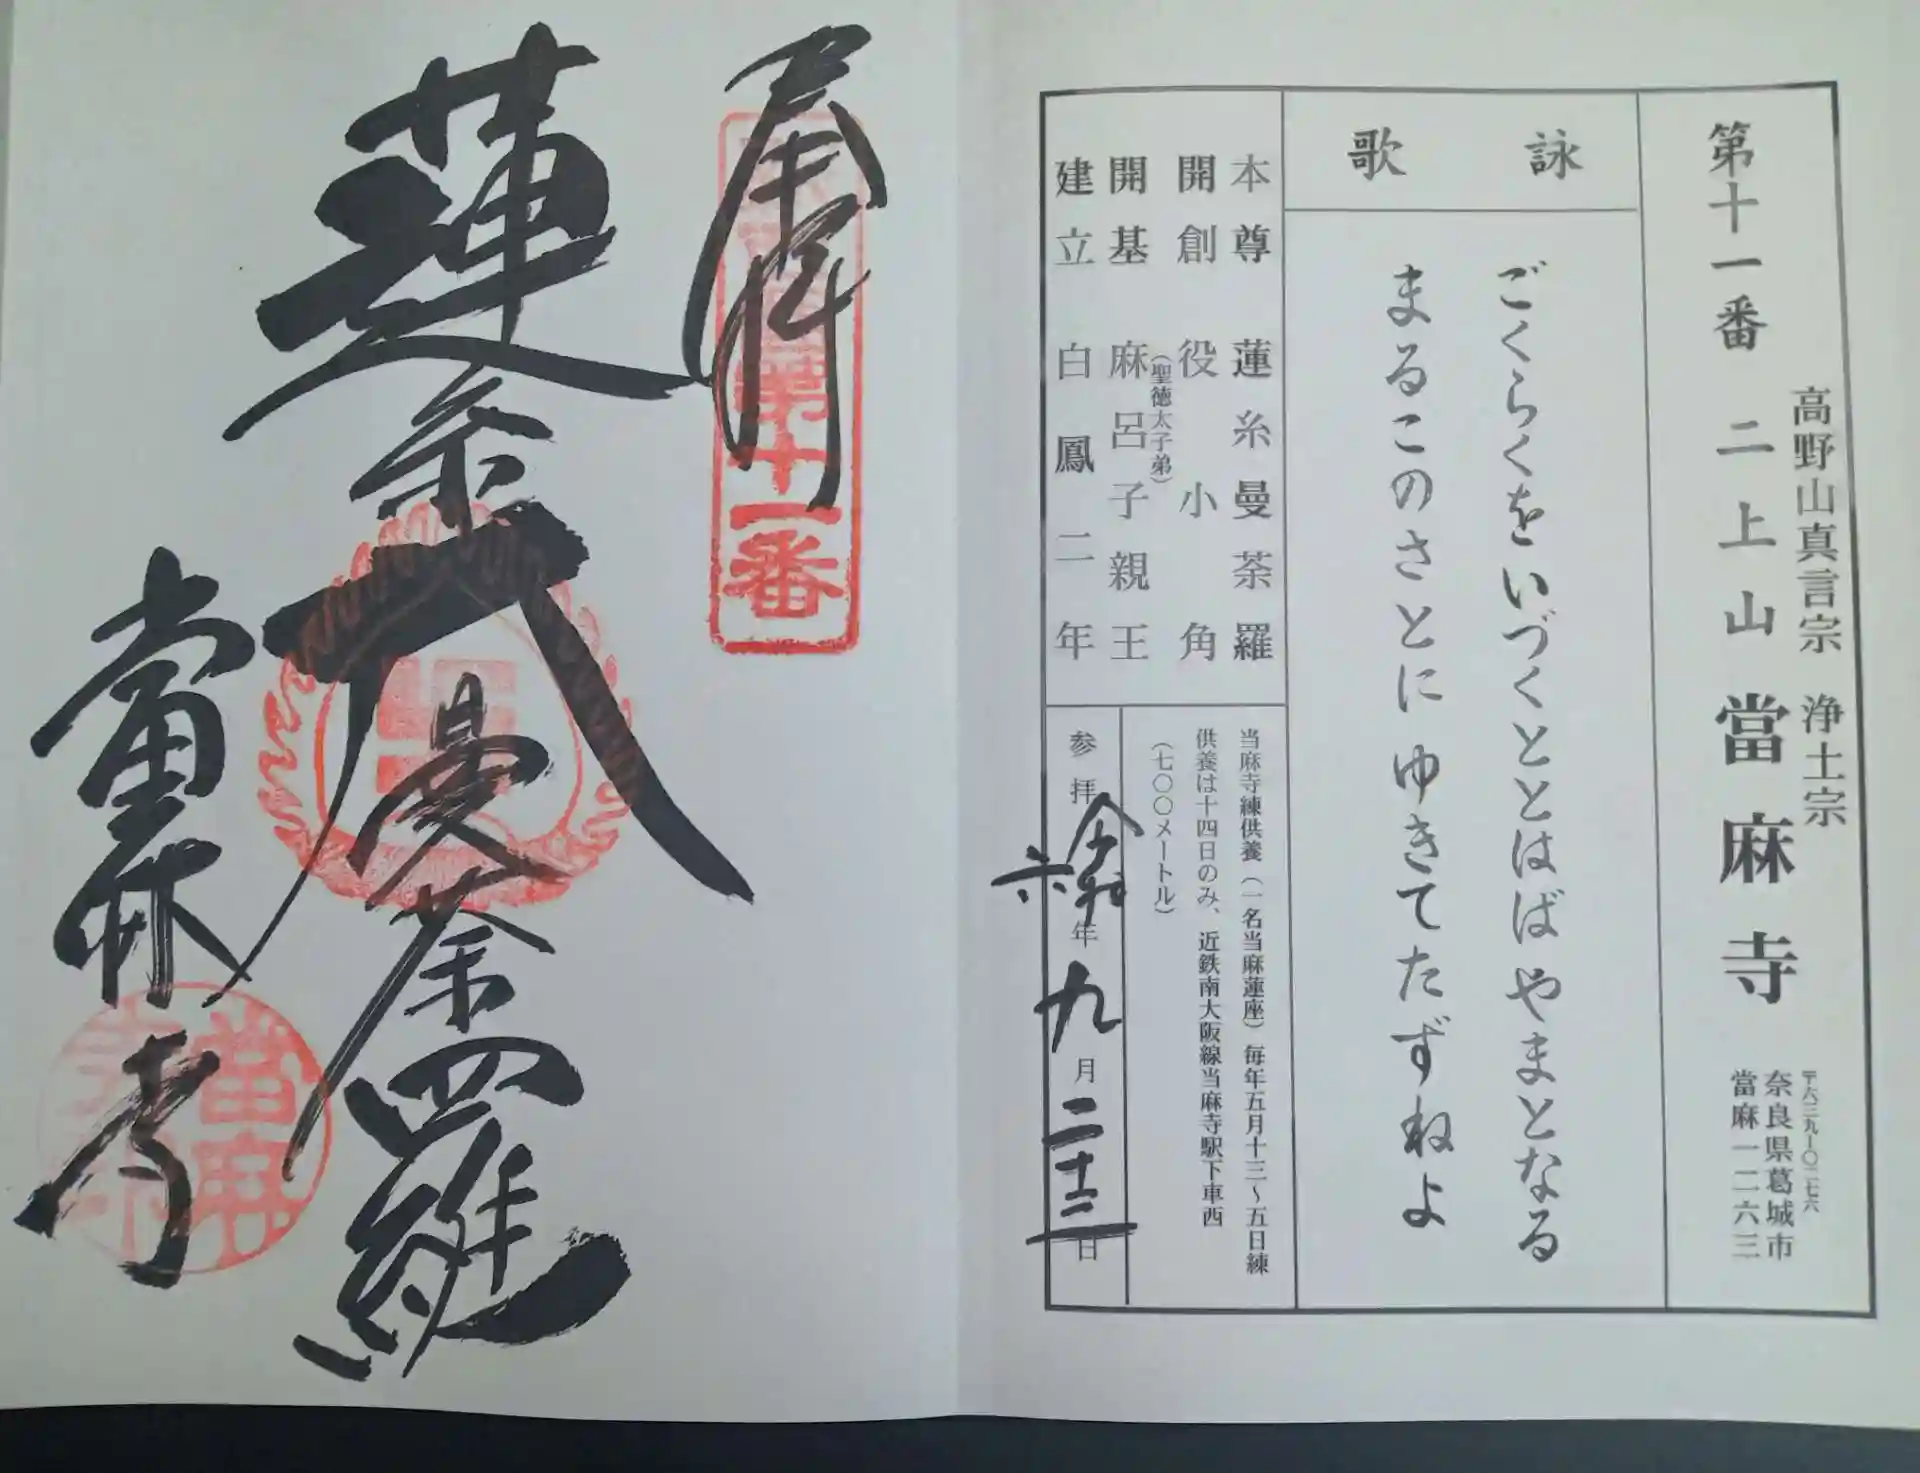 第十一番 二上山 當麻寺
高野山真言宗 浄土宗
〒六三九-〇二七六
奈良県葛城市
當麻一二六三
詠歌
ごくらくをいづくととはばやまとなる
まるこのさとにゆきてたずねよ
本尊 蓮糸曼荼羅
開創 役小角
(聖徳太子弟)
開基 麻呂子親王
建立 白鳳二年
当麻寺練供養(一名当麻蓮座)毎年五月十三~五日練
供養は十四日のみ、近鉄南大阪線当麻寺駅下車西
(七〇〇メートル)
参拝 令和六年九月二十三日
奉拝
第十一番
蓮糸大曼荼羅
當麻寺
當麻